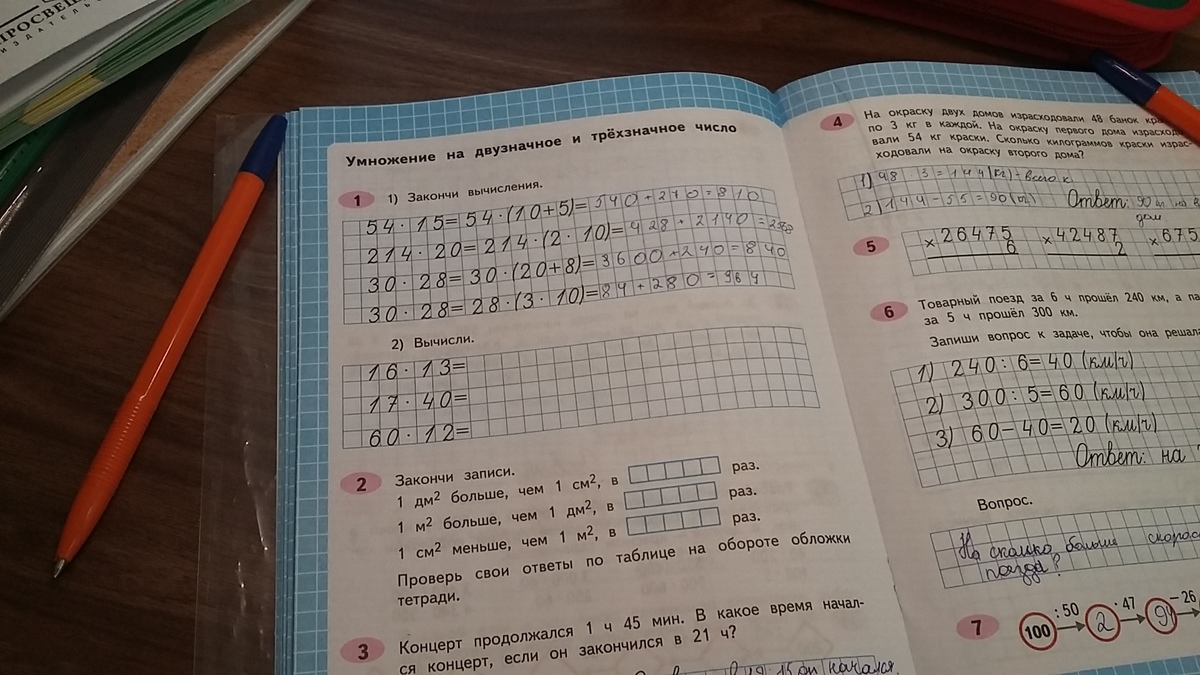 ПРОСВЕЩ
ИЗДАТЕЛЬС
Умножение на двузначное и трёхзначное число
1 1) Закончи вычисления.
54·15=54·(10+5)=540+270=810
214·20=214·(2·10)=428+2140=2568
30·28=30·(20+8)=3600+240=840
30·28=28·(3·10)=84+280=364
2) Вычисли.
16·13=
17·40=
60·12=
2 Закончи записи.
1 дм² больше, чем 1 см², в раз.
1 м² больше, чем 1 дм², в раз.
1 см² меньше, чем 1 м², в раз.
Проверь свои ответы по таблице на обороте обложки
тетради.
3 Концерт продолжался 1 ч 45 мин. В какое время начал-
ся концерт, если он закончился в 21 ч?
начался
4 На окраску двух домов израсходовали 48 банок кра
по 3 кг в каждой. На окраску первого дома израсходо
вали 54 кг краски. Сколько килограммов краски израс-
ходовали на окраску второго дома?
1) 48 3=144(кг)-всего к
2) 144-55=90(кг) Ответ: 90
дом
5 ×26475 ×42487 ×675
6 2
6 Товарный поезд за 6 ч прошёл 240 км, а па
за 5 ч прошёл 300 км.
Запиши вопрос к задаче, чтобы она решала
1) 240:6=40 (км/ч)
2) 300:5=60 (км/ч)
3) 60-40=20 (км/ч)
Ответ: на
Вопрос.
На сколько больше скорос
поезда?
7 100 :50 2 ·47 94 -26